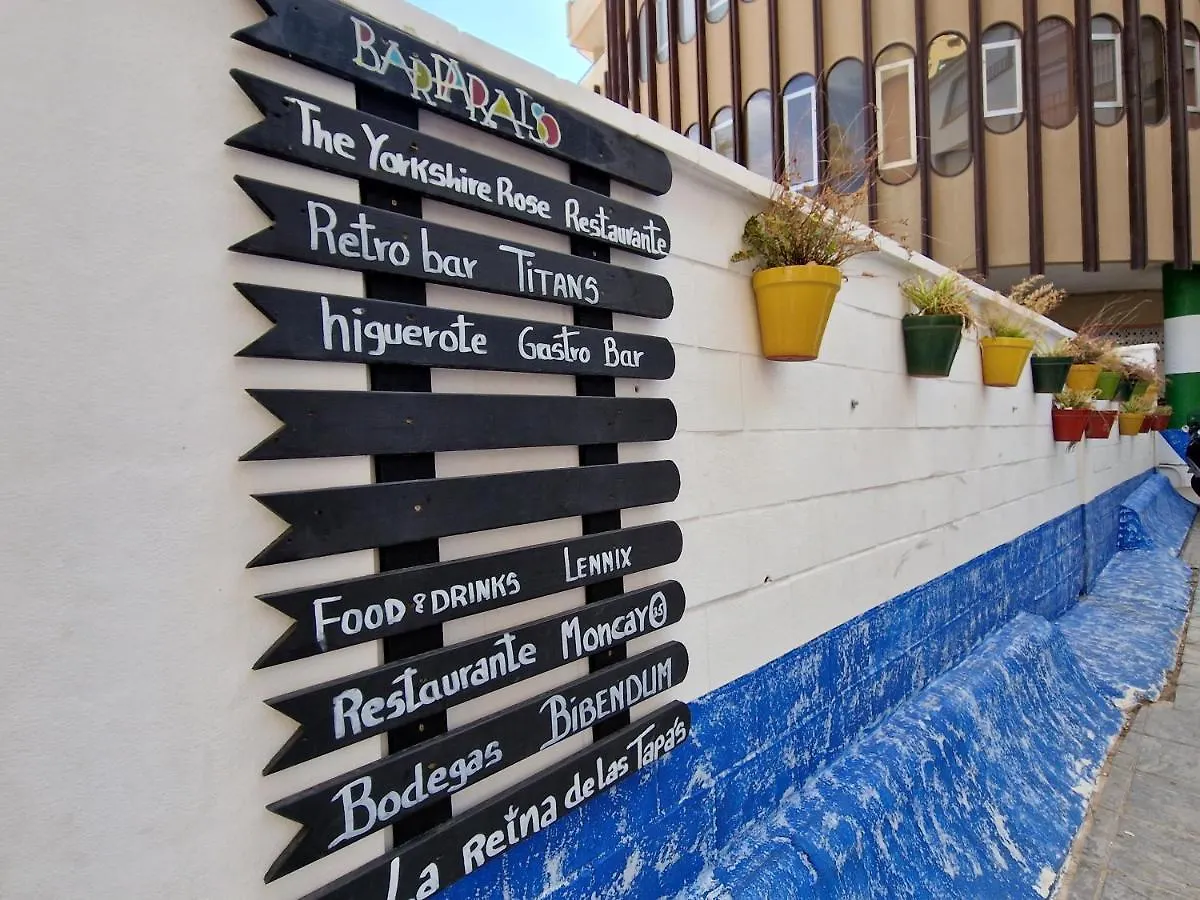 BAR PARAISO
The Yorkshire Rose Restaurante
Retro bar TITANS
higuerote Gastro Bar
FOOD & DRINKS LENNIX
Restaurante Moncayo 35
Bodegas BIBENDUM
LA REINA de las Tapas